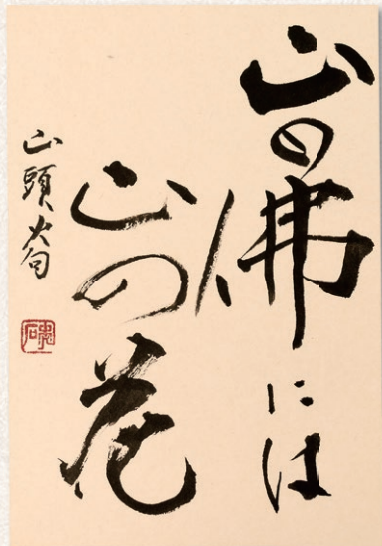 山の佛には
山の花
山頭火句